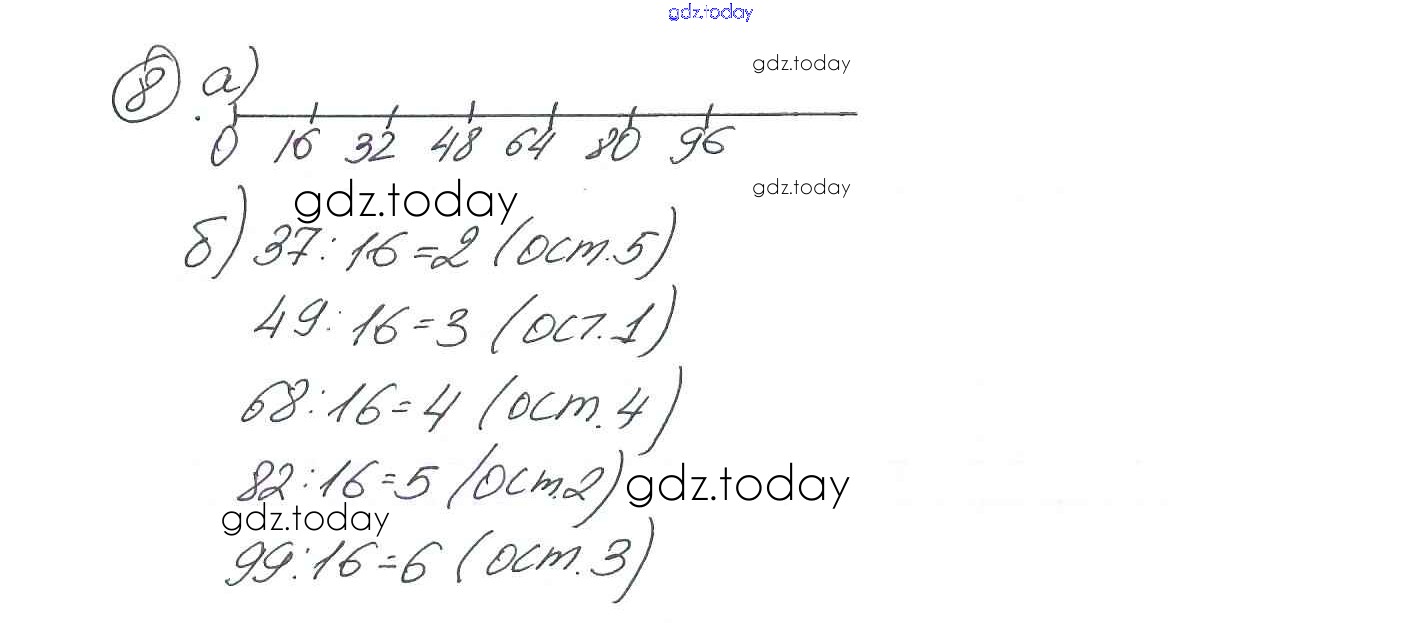 gdz.today
gdz.today
8 а)
0 16 32 48 64 80 96
gdz.today
gdz.today
б) 37:16=2 (ост.5)
49:16=3 (ост.1)
68:16=4 (ост.4)
82:16=5 (ост.2)
gdz.today
gdz.today
99:16=6 (ост.3)